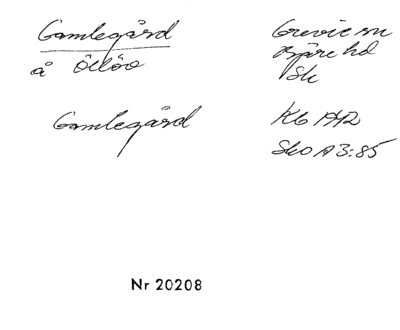 Gamlegård
å Öllöv
Gamlegård
Grevie sn
Bjäre hd
Sk
Kb AR
SkO A 3:85
Nr 20208